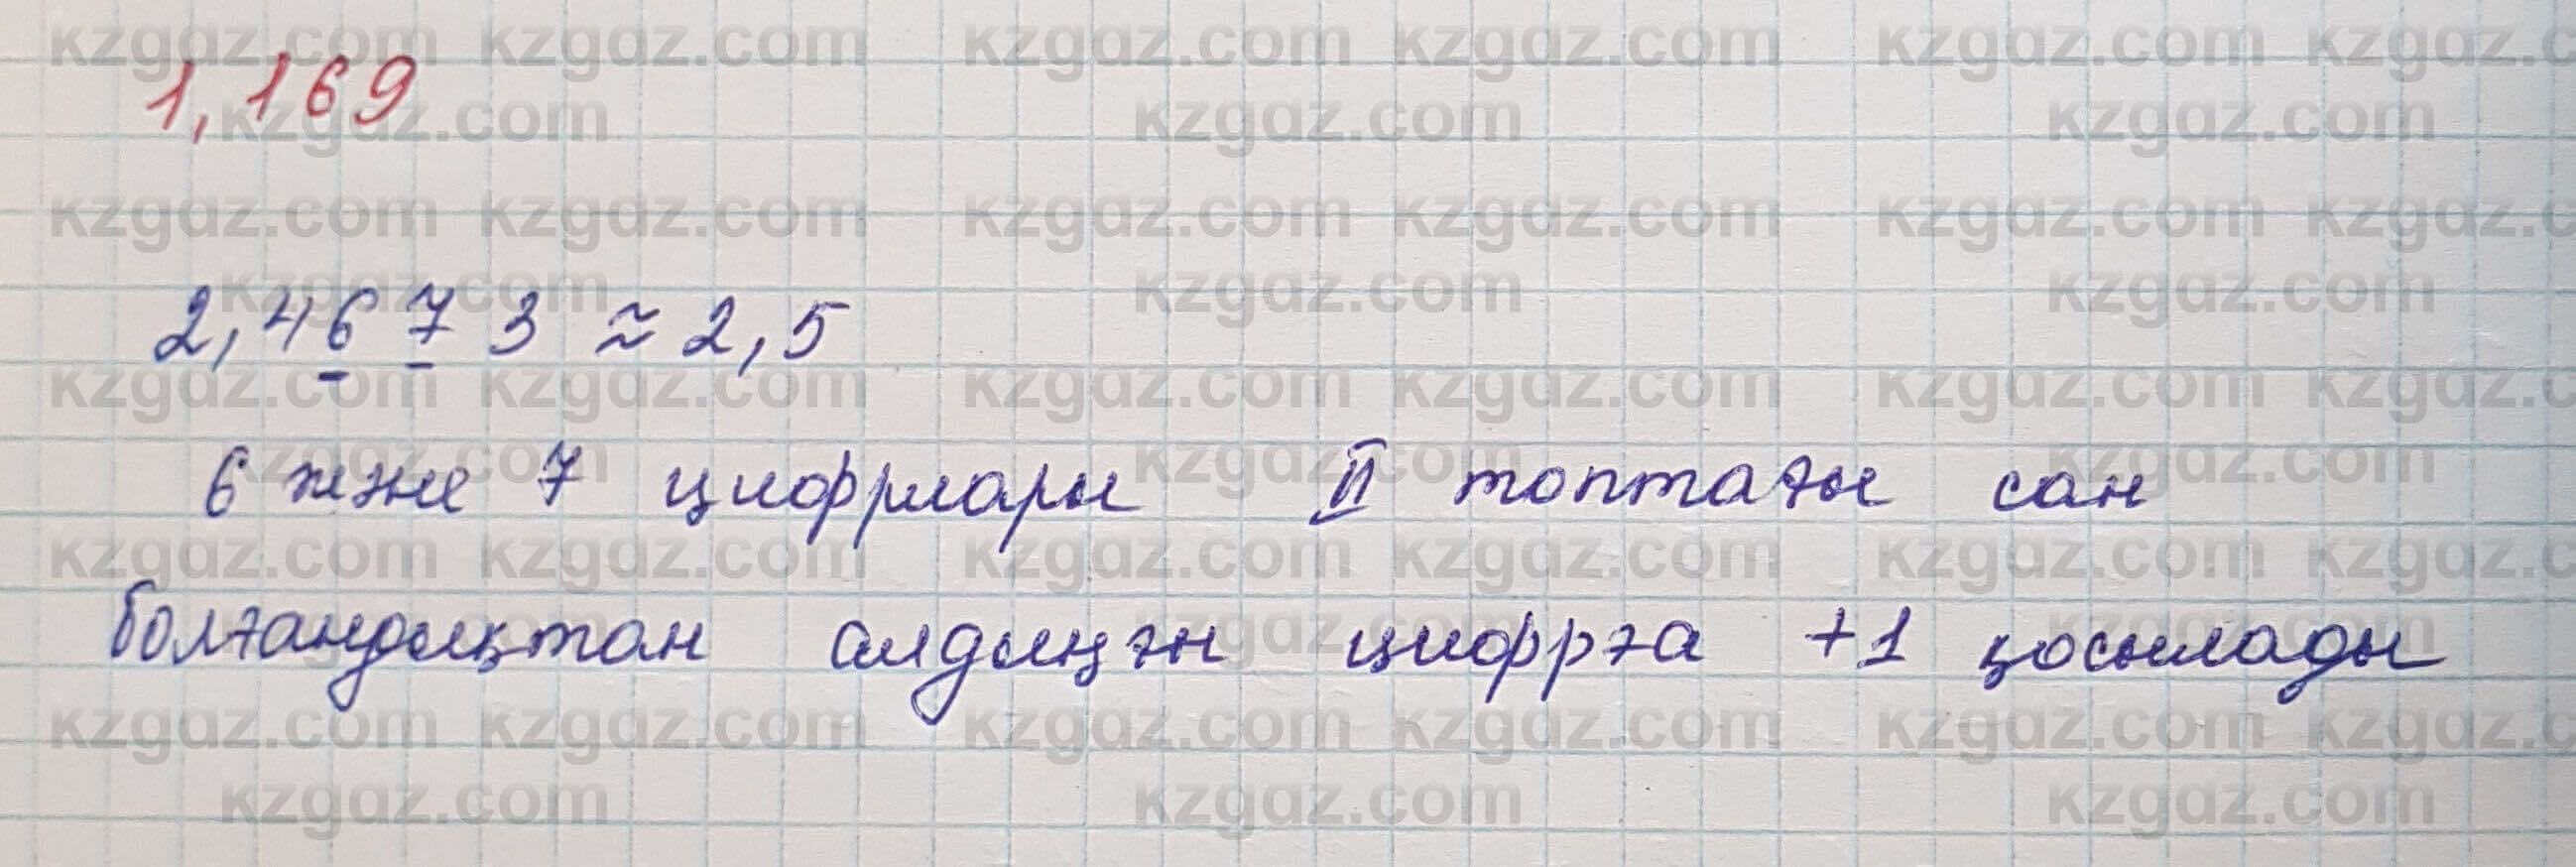 1,169
2,4673 ≈ 2,5
6 және 7 цифрлары II топтағы сан
болғандықтан алдыңғы цифрға +1 қосылады